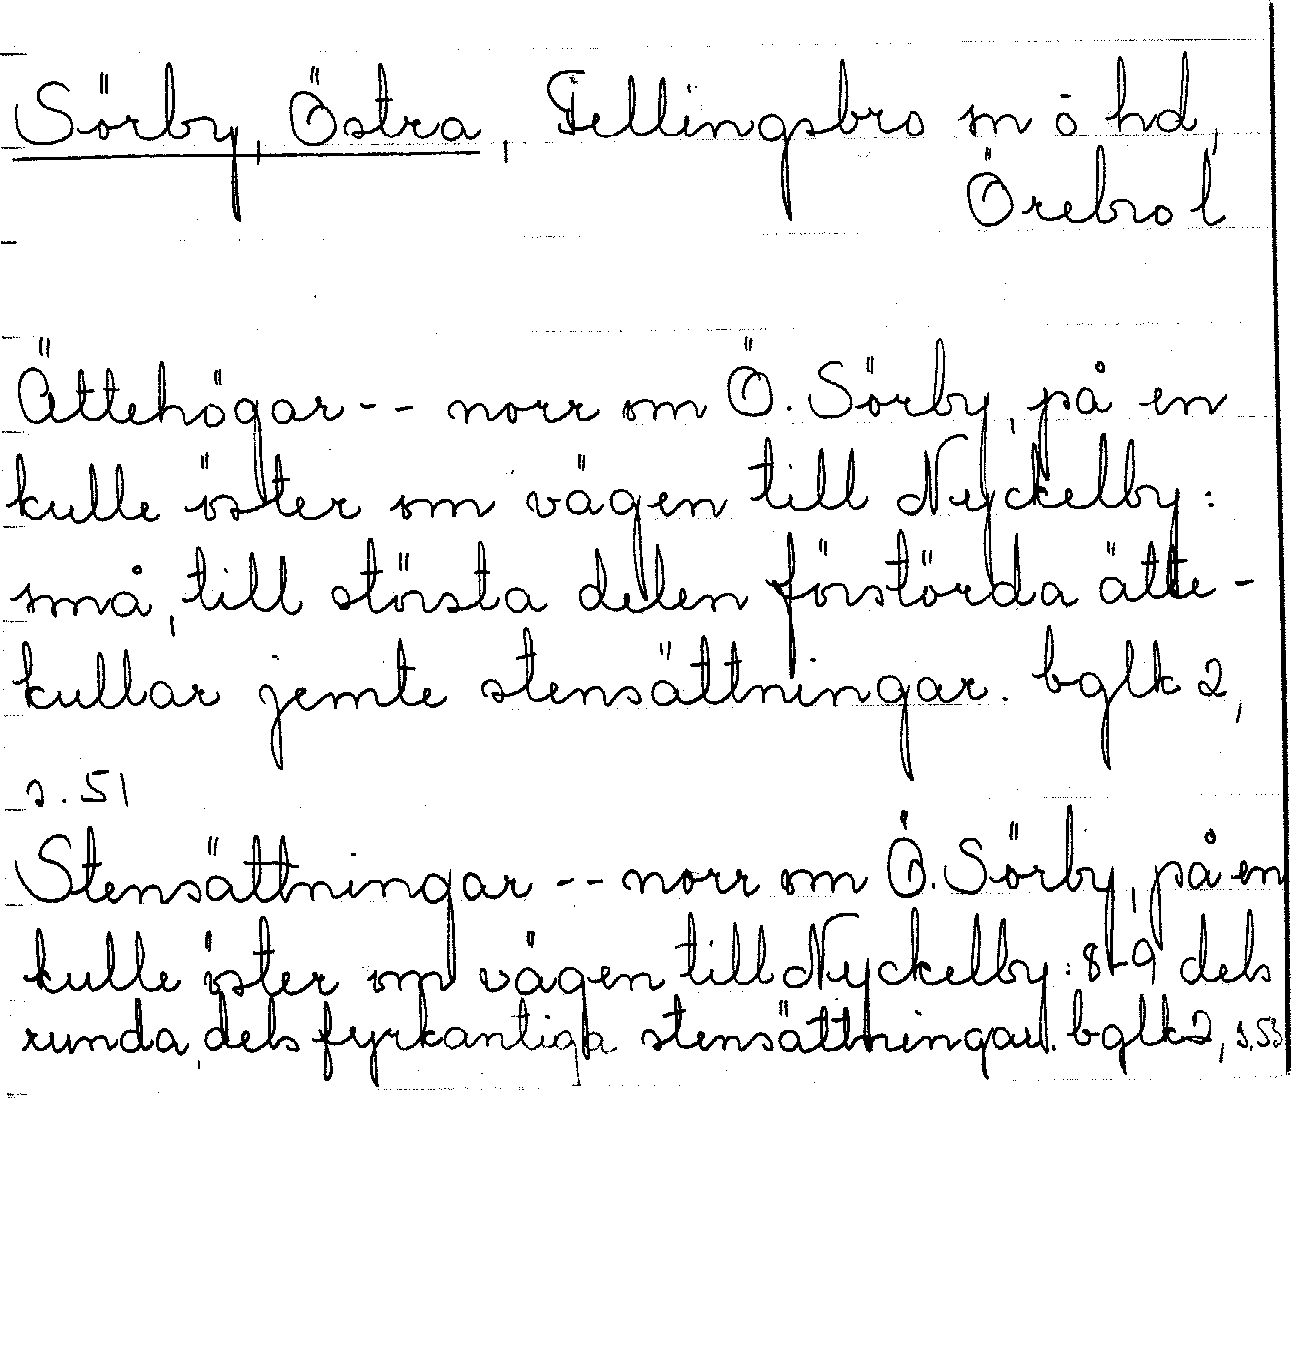 Sörby, Östra, Fellingsbro sn o hd,
Örebro l
Ättehögar-- norr om Ö. Sörby, på en
kulle öster om vägen till Nyckelby:
små, till största delen förstörda ätte-
kullar jemte stensättningar. bglk 2,
s. 51
Stensättningar -- norr om Ö. Sörby, på en
kulle öster om vägen till Nyckelby: 8-9 dels
runda, dels fyrkantiga stensättningar. bglk 2, s. 53